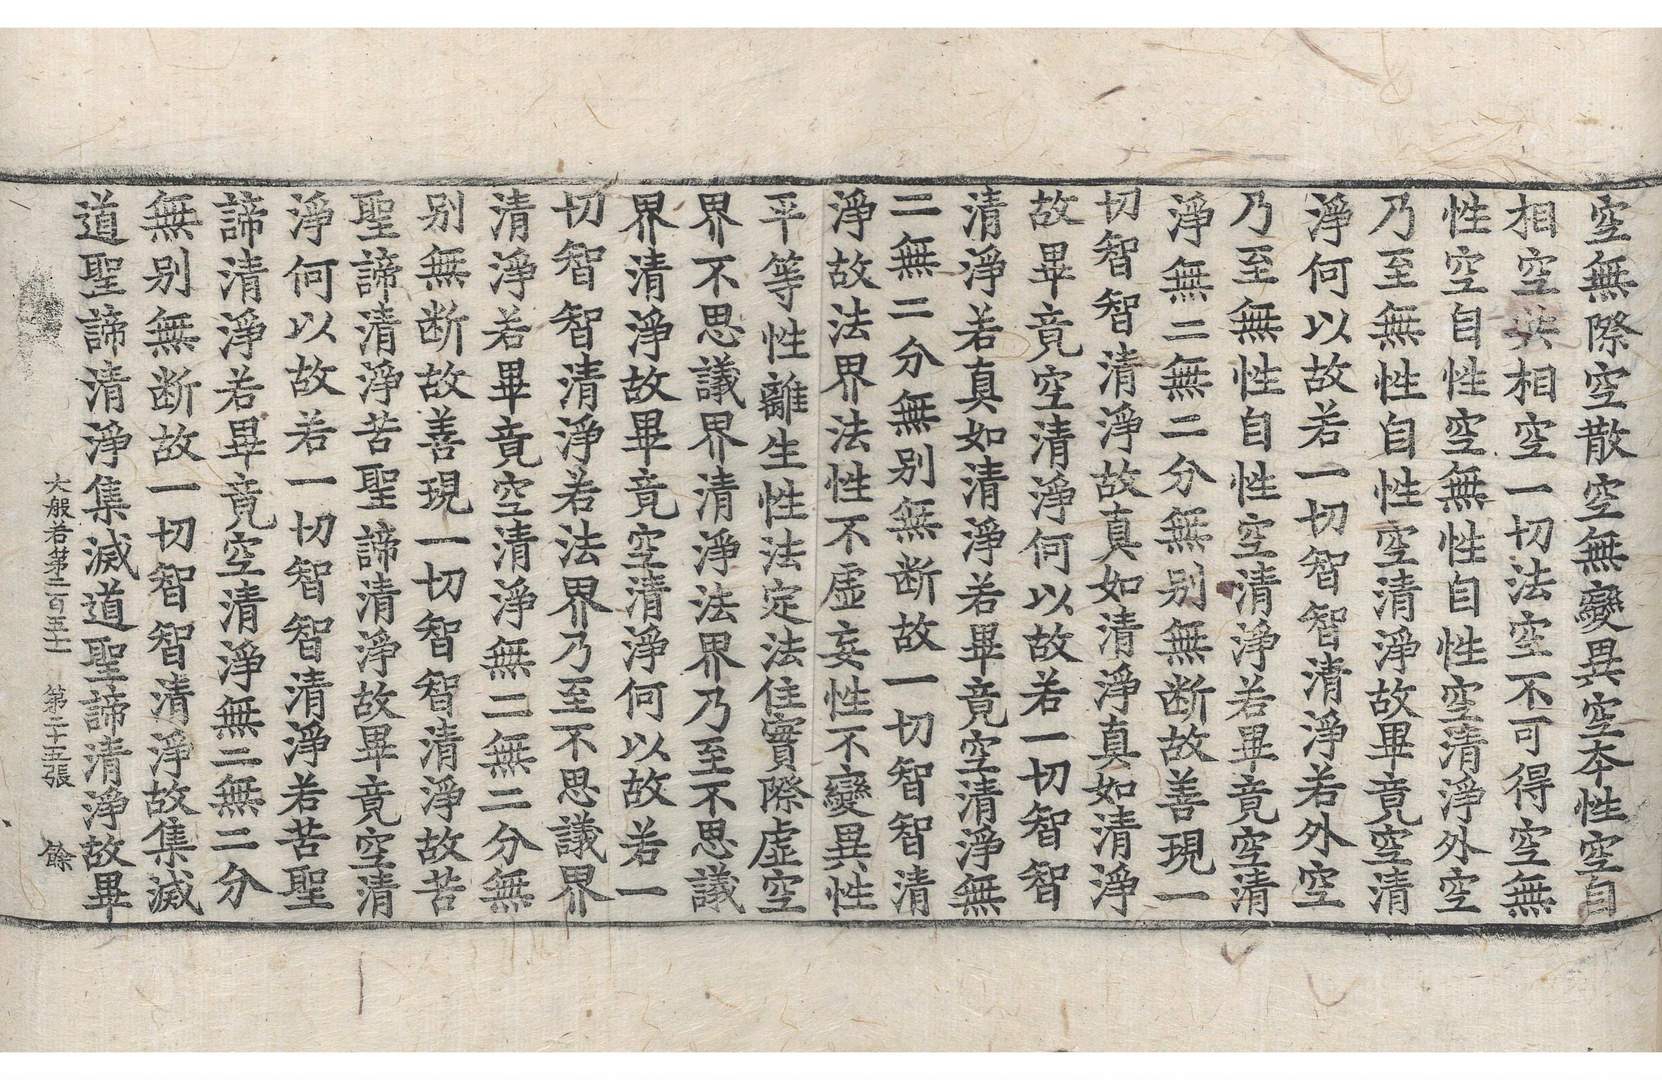 空無際空散空無變異空本性空自
相空共相空一切法空不可得空無
性空自性空無性自性空清淨外空
乃至無性自性空清淨故畢竟空清
淨何以故若一切智智清淨若外空
乃至無性自性空清淨若畢竟空清
淨無二無二分無别無断故善現一
切智智清淨故真如清淨真如清淨
故畢竟空清淨何以故若一切智智
清淨若真如清淨若畢竟空清淨無
二無二分無别無断故一切智智清
淨故法界法性不虛妄性不變異性
平等性離生性法定法住實際虛空
界不思議界清淨法界乃至不思議
界清淨故畢竟空清淨何以故若一
切智智清淨若法界乃至不思議界
清淨若畢竟空清淨無二無二分無
别無断故善現一切智智清淨故苦
聖諦清淨苦聖諦清淨故畢竟空清
淨何以故若一切智智清淨若苦聖
諦清淨若畢竟空清淨無二無二分
無别無断故一切智智清淨故集滅
道聖諦清淨集滅道聖諦清淨故畢
大般若第二百五十一 第二十五張 餘